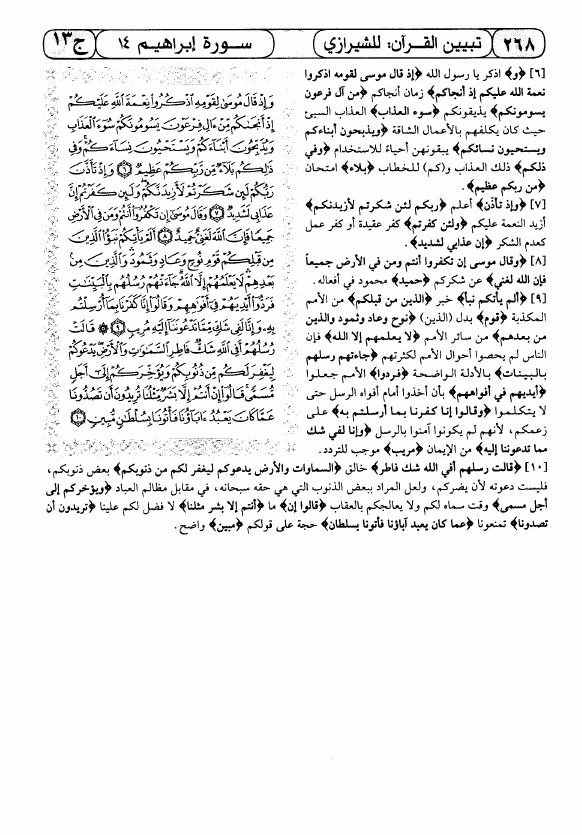 ٢٦٨ تبيين القرآن: للشيرازي سورة إبراهيم ١٤ ج١٣
[٦] ﴿و﴾ اذكر يا رسول الله ﴿إذ قال موسى لقومه اذكروا
نعمة الله عليكم إذ أنجاكم﴾ زمان أنجاكم ﴿من آل فرعون
يسومونكم﴾ يذيقونكم ﴿سوء العذاب﴾ العذاب السيئ
حيث كان يكلفهم بالأعمال الشاقة ﴿ويذبحون أبناءكم
ويستحيون نسائكم﴾ يبقونهن أحياءً للاستخدام ﴿وفي
ذلكم﴾ ذلك العذاب و(كم) للخطاب ﴿بلاء﴾ امتحان
﴿من ربكم عظيم﴾.
[٧] ﴿وإذ تأذّن﴾ أعلم ﴿ربكم لئن شكرتم لأزيدنكم﴾
أزيد النعمة عليكم ﴿ولئن كفرتم﴾ كفر عقيدة أو كفر عمل
كعدم الشكر ﴿إن عذابي لشديد﴾.
[٨] ﴿وقال موسى إن تكفروا أنتم ومن في الأرض جميعاً
فإن الله لغني﴾ عن شكركم ﴿حميد﴾ محمود في أفعاله.
[٩] ﴿ألم يأتكم نبأ﴾ خبر ﴿الذين من قبلكم﴾ من الأمم
المكذبة ﴿قوم﴾ بدل (الذين) ﴿نوح وعاد وثمود والذين
من بعدهم﴾ من سائر الأمم ﴿لا يعلمهم إلا الله﴾ فإن
الناس لم يحصوا أحوال الأمم لكثرتهم ﴿جاءتهم رسلهم
بالبينات﴾ بالأدلة الواضحة ﴿فردوا﴾ الأمم جعلوا
﴿أيديهم في أفواههم﴾ بأن أخذوا أمام أفواه الرسل حتى
لا يتكلموا ﴿وقالوا إنا كفرنا بما أرسلتم به﴾ على
زعمكم، لأنهم لم يكونوا آمنوا بالرسل ﴿وإنا لفي شك
مما تدعوننا إليه﴾ من الإيمان ﴿مريب﴾ موجب للتردد.
وَإِذْ قَالَ مُوسَىٰ لِقَوْمِهِ ٱذْكُرُوا۟ نِعْمَةَ ٱللَّهِ عَلَيْكُمْ
إِذْ أَنجَىٰكُم مِّنْ ءَالِ فِرْعَوْنَ يَسُومُونَكُمْ سُوٓءَ ٱلْعَذَابِ
وَيُذَبِّحُونَ أَبْنَآءَكُمْ وَيَسْتَحْيُونَ نِسَآءَكُمْ ۚ وَفِى
ذَٰلِكُم بَلَآءٌ مِّن رَّبِّكُمْ عَظِيمٌ ۝٦ وَإِذْ تَأَذَّنَ
رَبُّكُمْ لَئِن شَكَرْتُمْ لَأَزِيدَنَّكُمْ ۖ وَلَئِن كَفَرْتُمْ إِنَّ
عَذَابِى لَشَدِيدٌ ۝٧ وَقَالَ مُوسَىٰٓ إِن تَكْفُرُوٓا۟ أَنتُمْ وَمَن فِى ٱلْأَرْضِ
جَمِيعًا فَإِنَّ ٱللَّهَ لَغَنِىٌّ حَمِيدٌ ۝٨ أَلَمْ يَأْتِكُمْ نَبَؤُا۟ ٱلَّذِينَ
مِن قَبْلِكُمْ قَوْمِ نُوحٍ وَعَادٍ وَثَمُودَ ۛ وَٱلَّذِينَ مِنۢ
بَعْدِهِمْ ۛ لَا يَعْلَمُهُمْ إِلَّا ٱللَّهُ ۚ جَآءَتْهُمْ رُسُلُهُم بِٱلْبَيِّنَٰتِ
فَرَدُّوٓا۟ أَيْدِيَهُمْ فِىٓ أَفْوَٰهِهِمْ وَقَالُوٓا۟ إِنَّا كَفَرْنَا بِمَآ أُرْسِلْتُم
بِهِۦ وَإِنَّا لَفِى شَكٍّ مِّمَّا تَدْعُونَنَآ إِلَيْهِ مُرِيبٍ ۝٩ ۞ قَالَتْ
رُسُلُهُمْ أَفِى ٱللَّهِ شَكٌّ فَاطِرِ ٱلسَّمَٰوَٰتِ وَٱلْأَرْضِ ۖ يَدْعُوكُمْ
لِيَغْفِرَ لَكُم مِّن ذُنُوبِكُمْ وَيُؤَخِّرَكُمْ إِلَىٰٓ أَجَلٍ
مُّسَمًّى ۚ قَالُوٓا۟ إِنْ أَنتُمْ إِلَّا بَشَرٌ مِّثْلُنَا تُرِيدُونَ أَن تَصُدُّونَا
عَمَّا كَانَ يَعْبُدُ ءَابَآؤُنَا فَأْتُونَا بِسُلْطَٰنٍ مُّبِينٍ ۝١٠
[١٠] ﴿قالت رسلهم أفي الله شك فاطر﴾ خالق ﴿السماوات والأرض يدعوكم ليغفر لكم من ذنوبكم﴾ بعض ذنوبكم،
فليست دعوته لأن يضركم، ولعل المراد ببعض الذنوب التي هي حقه سبحانه، في مقابل مظالم العباد ﴿ويؤخركم إلى
أجل مسمى﴾ وقت سماه لكم ولا يعالجكم بالعقاب ﴿قالوا إن﴾ ما ﴿أنتم إلا بشر مثلنا﴾ لا فضل لكم علينا ﴿تريدون أن
تصدونا﴾ تمنعونا ﴿عما كان يعبد آباؤنا فأتونا بسلطان﴾ حجة على قولكم ﴿مبين﴾ واضح.